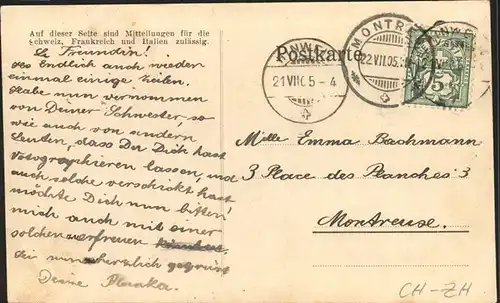 Auf dieser Seite sind Mitteilungen für die
Schweiz, Frankreich und Italien zulässig.
Postkarte
L. Freundin!
des Endlich auch wieder
einmal einige Zeilen.
Habe nun vernommen
von Deiner Schwester, so
wie auch von andern
Leuten, dass Du Dich hast
Votographieren lassen, und
auch solche verschickt hast
möchte Dich nun bitten!
mich auch mit einer
solchen erfreuen
Sei nun herzlich gegrüsst
Deine
21 VII 05 - 4
MONTREUX
22 VII 05
5
Mlle Emma Bachmann
3 Place des Planches 3
Montreuse.
CH-ZH